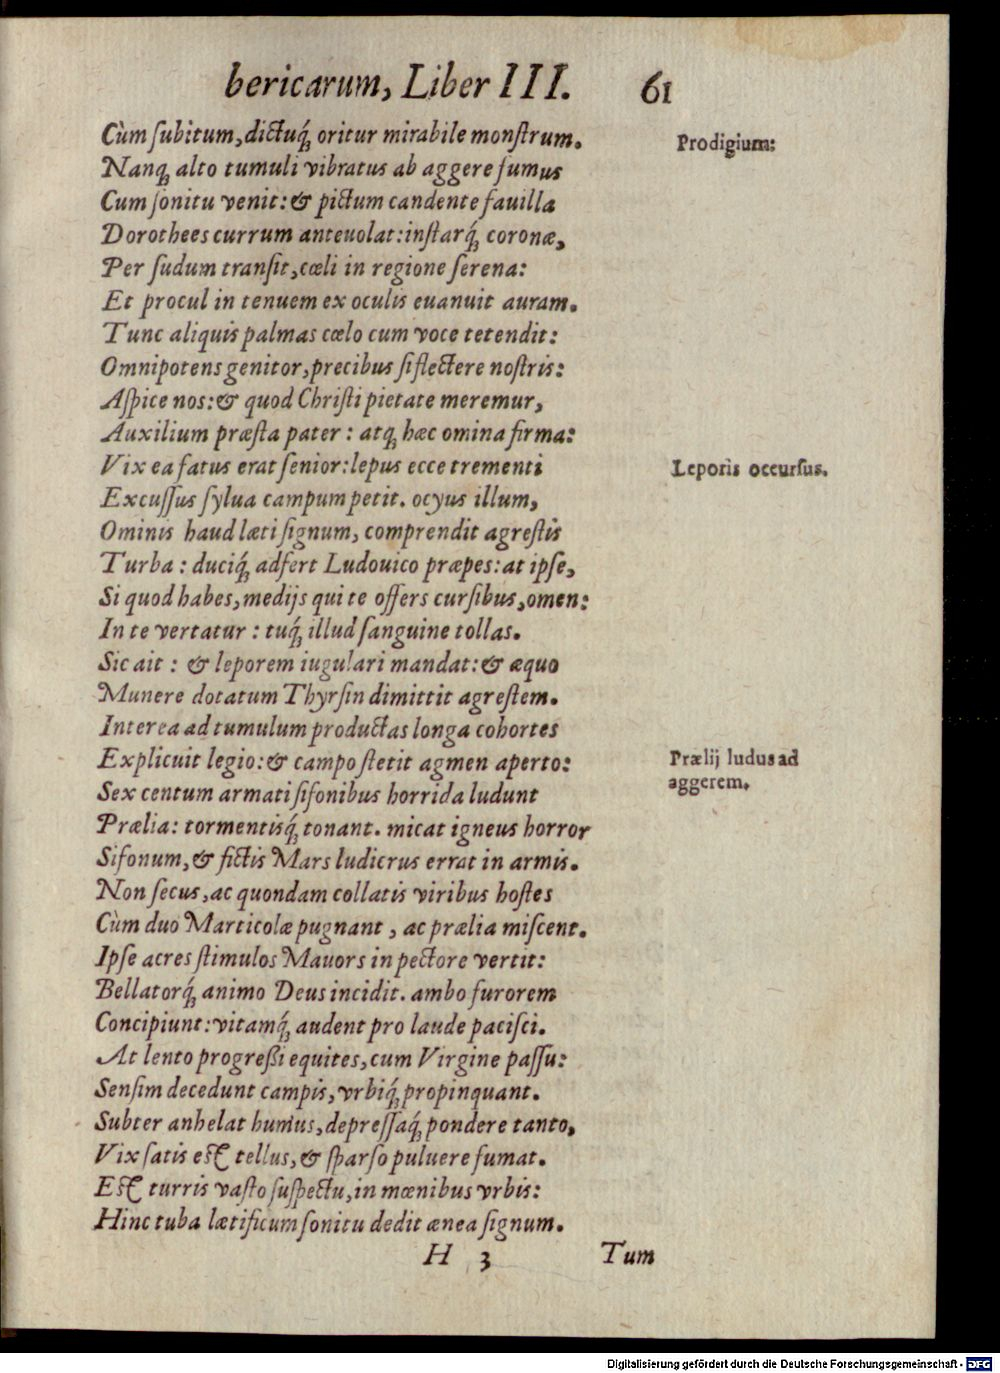 bericarum, Liber III. 61
Cùm ſubitum, dictuq́; oritur mirabile monſtrum. Prodigium:
Nanq; alto tumuli vibratus ab aggere fumus
Cum ſonitu venit: & pictum candente fauilla
Dorothees currum anteuolat: inſtarq́; coronæ,
Per ſudum tranſit, cœli in regione ſerena:
Et procul in tenuem ex oculis euanuit auram.
Tunc aliquis palmas cœlo cum voce tetendit:
Omnipotens genitor, precibus ſi flectere noſtris:
Aſpice nos: & quod Chriſti pietate meremur,
Auxilium præſta pater: atq; hæc omina firma:
Vix ea fatus erat ſenior: lepus ecce trementi Leporis occurſus.
Excuſſus ſylua campum petit. ocyus illum,
Ominis haud læti ſignum, comprendit agreſtis
Turba: duciq́; adfert Ludouico præpes: at ipſe,
Si quod habes, medijs qui te offers curſibus, omen:
In te vertatur: tuq́; illud ſanguine tollas.
Sic ait: & leporem iugulari mandat: & æquo
Munere dotatum Thyrſin dimittit agreſtem.
Interea ad tumulum productas longa cohortes
Explicuit legio: & campo ſtetit agmen aperto: Prælij ludus ad
aggerem.
Sex centum armati ſifonibus horrida ludunt
Prælia: tormentisq́; tonant. micat igneus horror
Sifonum, & fictis Mars ludicrus errat in armis.
Non ſecus, ac quondam collatis viribus hoſtes
Cùm duo Marticolæ pugnant, ac prælia miſcent.
Ipſe acres ſtimulos Mauors in pectore vertit:
Bellatorq́; animo Deus incidit. ambo furorem
Concipiunt: vitamq́; audent pro laude paciſci.
At lento progreßi equites, cum Virgine paſſu:
Senſim decedunt campis, vrbiq́; propinquant.
Subter anhelat humus, depreſſaq́; pondere tanto,
Vix ſatis eſt tellus, & ſparſo puluere fumat.
Eſt turris vaſto ſuſpectu, in mœnibus vrbis:
Hinc tuba lætificum ſonitu dedit ænea ſignum.
H 3 Tum
Digitalisierung gefördert durch die Deutsche Forschungsgemeinschaft - DFG